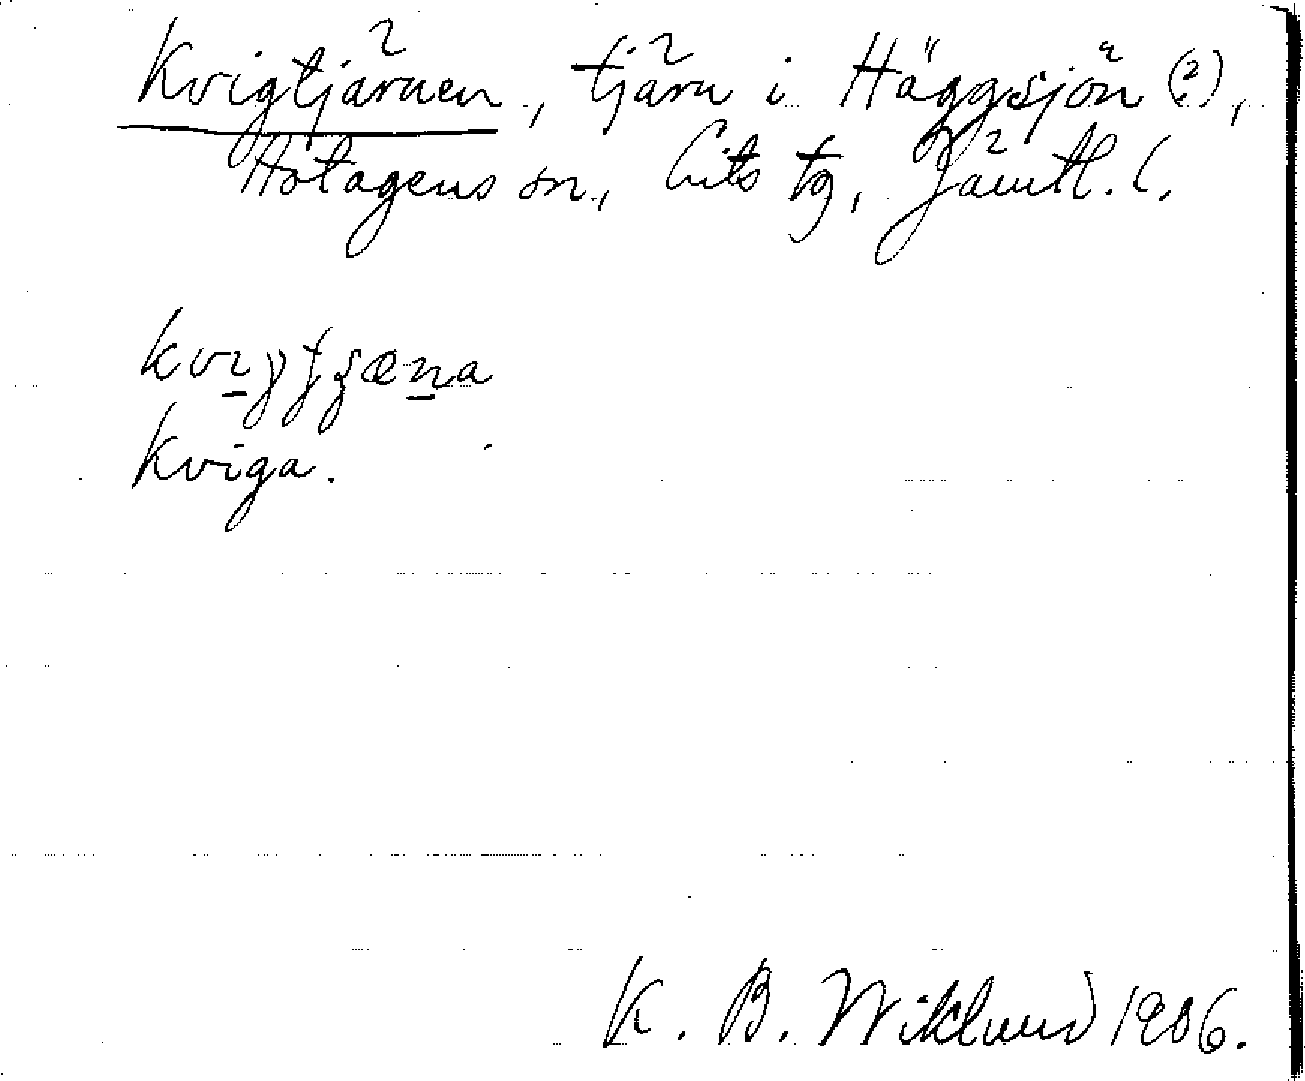 Kvigtjärnen, tjärn i Häggsjön (?),
Hotagens sn, Lits tg, Jämtl. l.
Kviga.
K. B. Wiklund 1906.